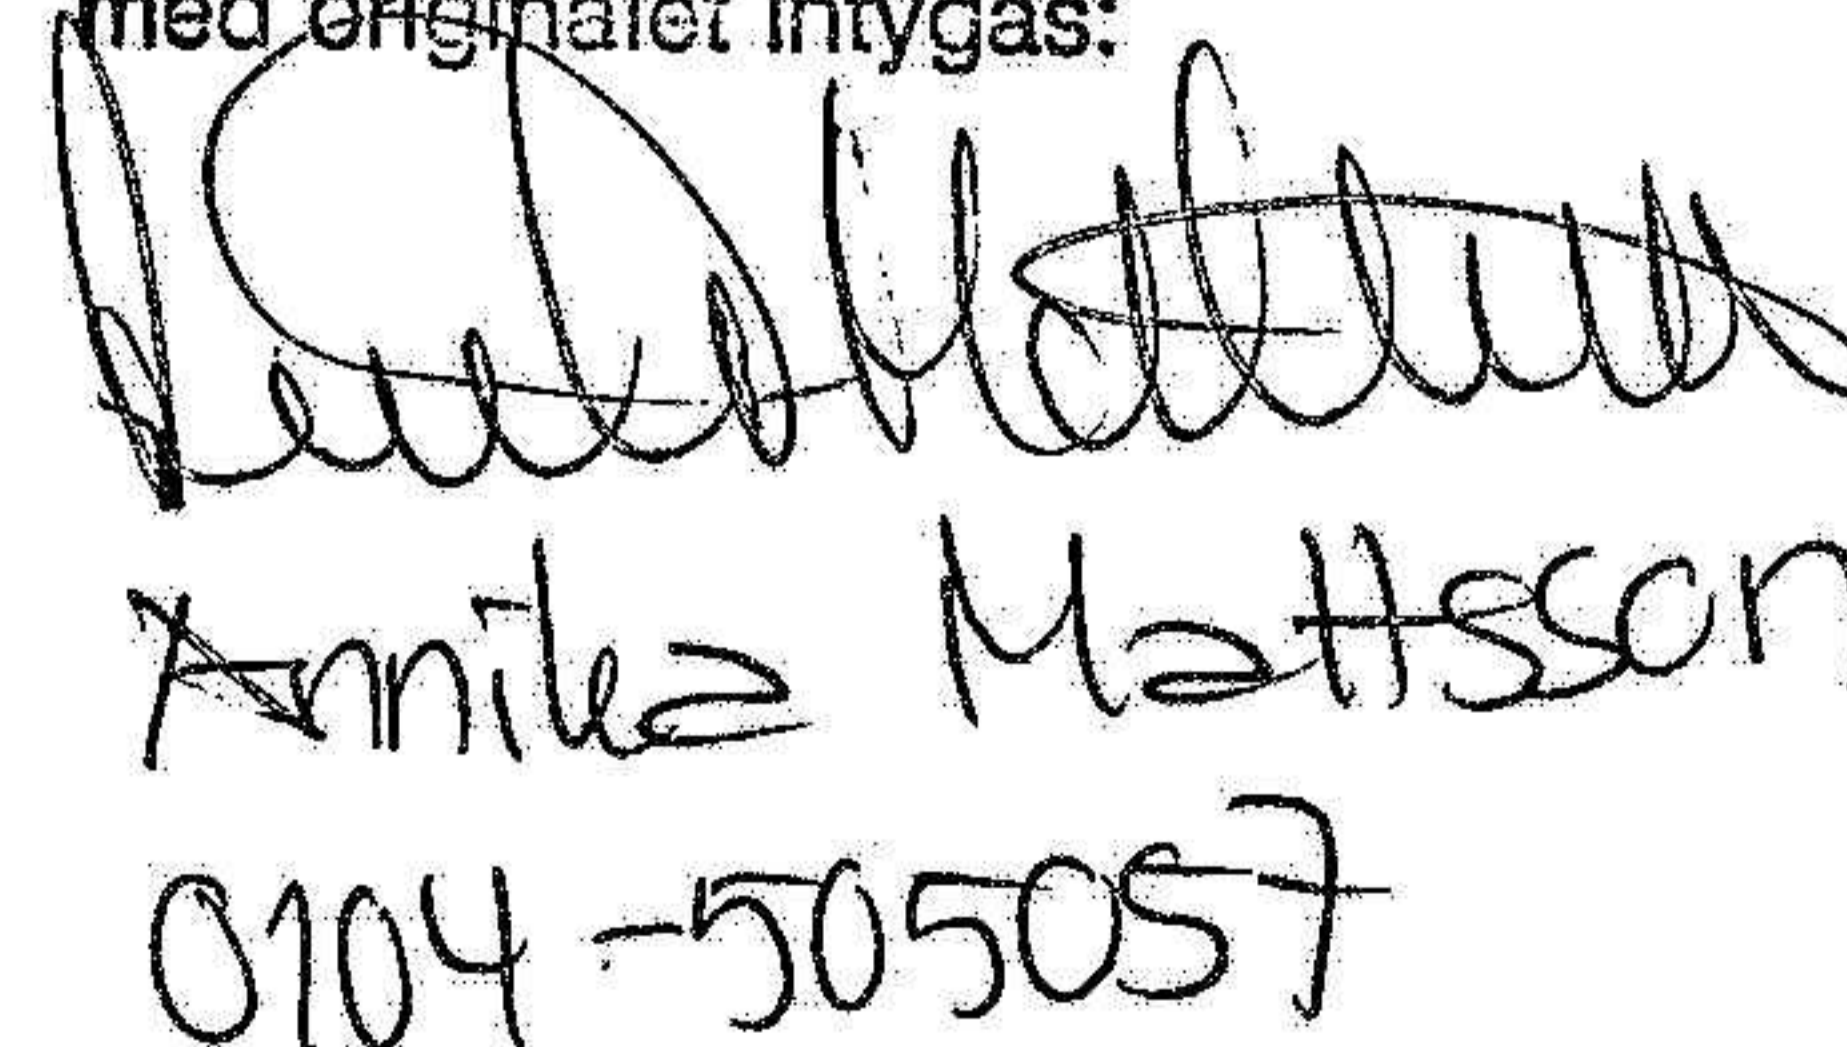 med originalet intygas:
Annika Mattsson
0104-505057